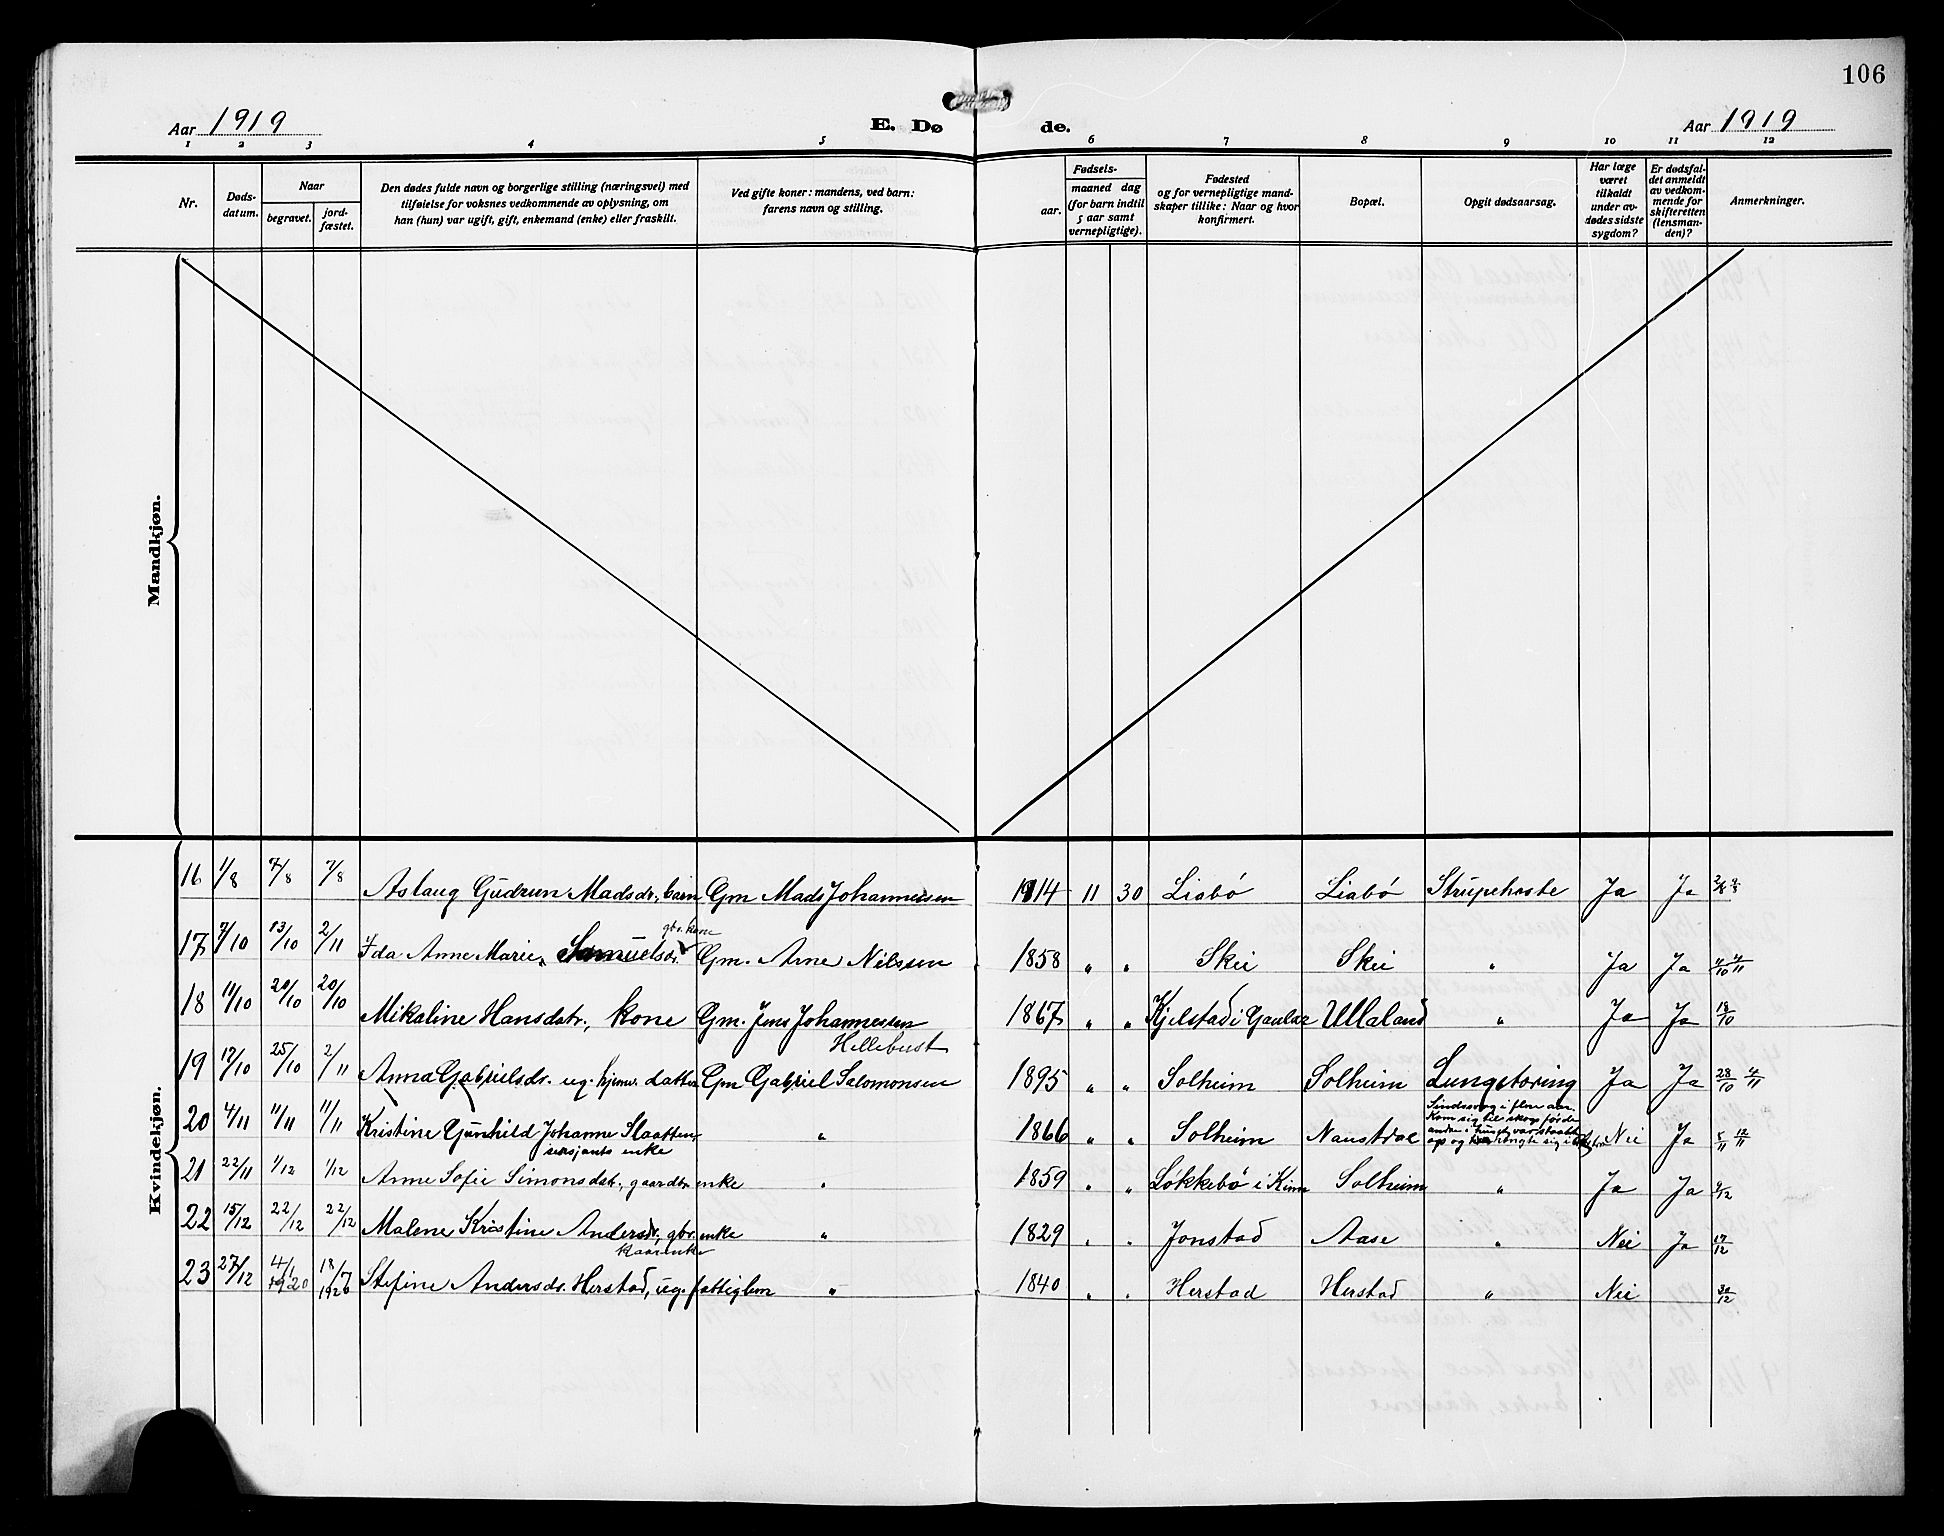 106
Aar 1919 E. Dø de. Aar 1919
1 2 3 4 5 6 7 8 9 10 11 12
Nr.
Dødsdatum.
Naar
begravet.
jordfæstet.
Den dødes fulde navn og borgerlige stilling (næringsvei) med
tilføielse for voksnes vedkommende av oplysning, om
han (hun) var ugift, gift, enkemand (enke) eller fraskilt.
Ved gifte koner: mandens, ved barn:
farens navn og stilling.
Fødsels-
aar.
maaned dag
(for barn indtil
5 aar samt
vernepligtige).
Fødested
og for vernepligtige mand-
skaper tillike: Naar og hvor
konfirmert.
Bopæl.
Opgit dødsaarsag.
Har læge
været
tilkaldt
under av-
dødes sidste
sygdom?
Er dødsfal-
det anmeldt
av vedkom-
mende for
skifteretten
(lensman-
den)?
Anmerkninger.
Mandkjøn.
Kvindekjøn.
16 1/8 7/8 7/8 Aslaug Gudrun Madsdr., barn Gm Mads Johannessen 1914 11 30 Liabö Liabö Strupehoste Ja Ja
gbr. kone
17 7/10 13/10 2/11 Ida Anne Marie Samuelsdr. Gm. Arne Nilssen 1858 " " Skei Skei " Ja Ja 4/10 4/11
18 11/10 20/10 20/10 Mikaline Hansdatr., kone Gm. Jens Johannessen 1867 " " Kjelstad i Gaular Ullaland " Ja Ja 18/10
Hellebust
19 17/10 25/10 2/11 Anna Gabrielsdr. ug. hjemv. datter Gm Gabriel Salomonsen 1895 " " Solheim Solheim Lungetæring Ja Ja 28/10 4/11
20 4/11 11/11 11/11 Kristine Gunhild Johanne Slaatten, " 1866 " " Solheim Naustdal Sindssvag i flere aar.
Kom sig til skogs förde
andre i huset var staat
op og hængte sig i et Nei Ja 5/11 12/11
sersjants enke
21 22/11 1/12 1/12 Anne Sofie Simonsdatr., gaardbr. enke " 1859 " " Løkkebö i Kinn Solheim " Ja Ja 9/12
22 15/12 22/12 22/12 Malene Kristine Andersdr., gbr. enke " 1829 " " Jonstad Aase " Nei Ja 17/12
kaarenke
23 27/12 4/1 1920 18/7 1920 Stefine Andersdr. Herstad, ug. fattiglem " 1840 " " Herstad Herstad " Nei 30/12